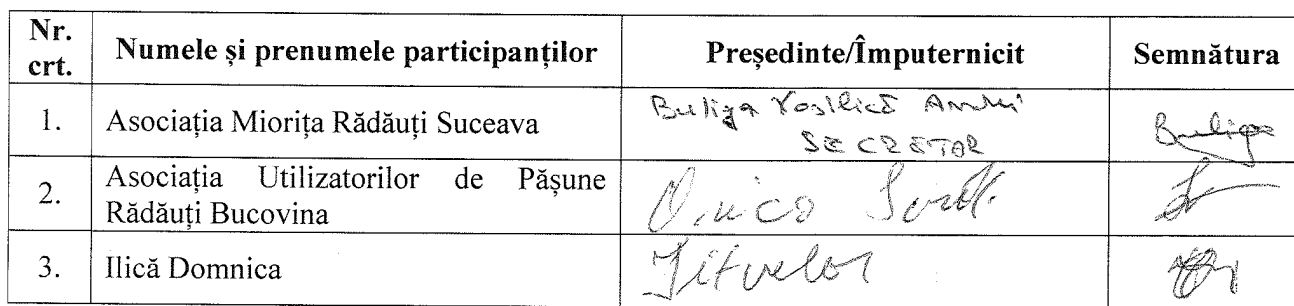 Nr. crt.
Numele și prenumele participanților
Președinte/Împuternicit
Semnătura
1.
Asociația Miorița Rădăuți Suceava
Buliga Vasilică Andrei
SECRETAR
Buliga
2.
Asociația Utilizatorilor de Pășune
Rădăuți Bucovina
3.
Ilică Domnica